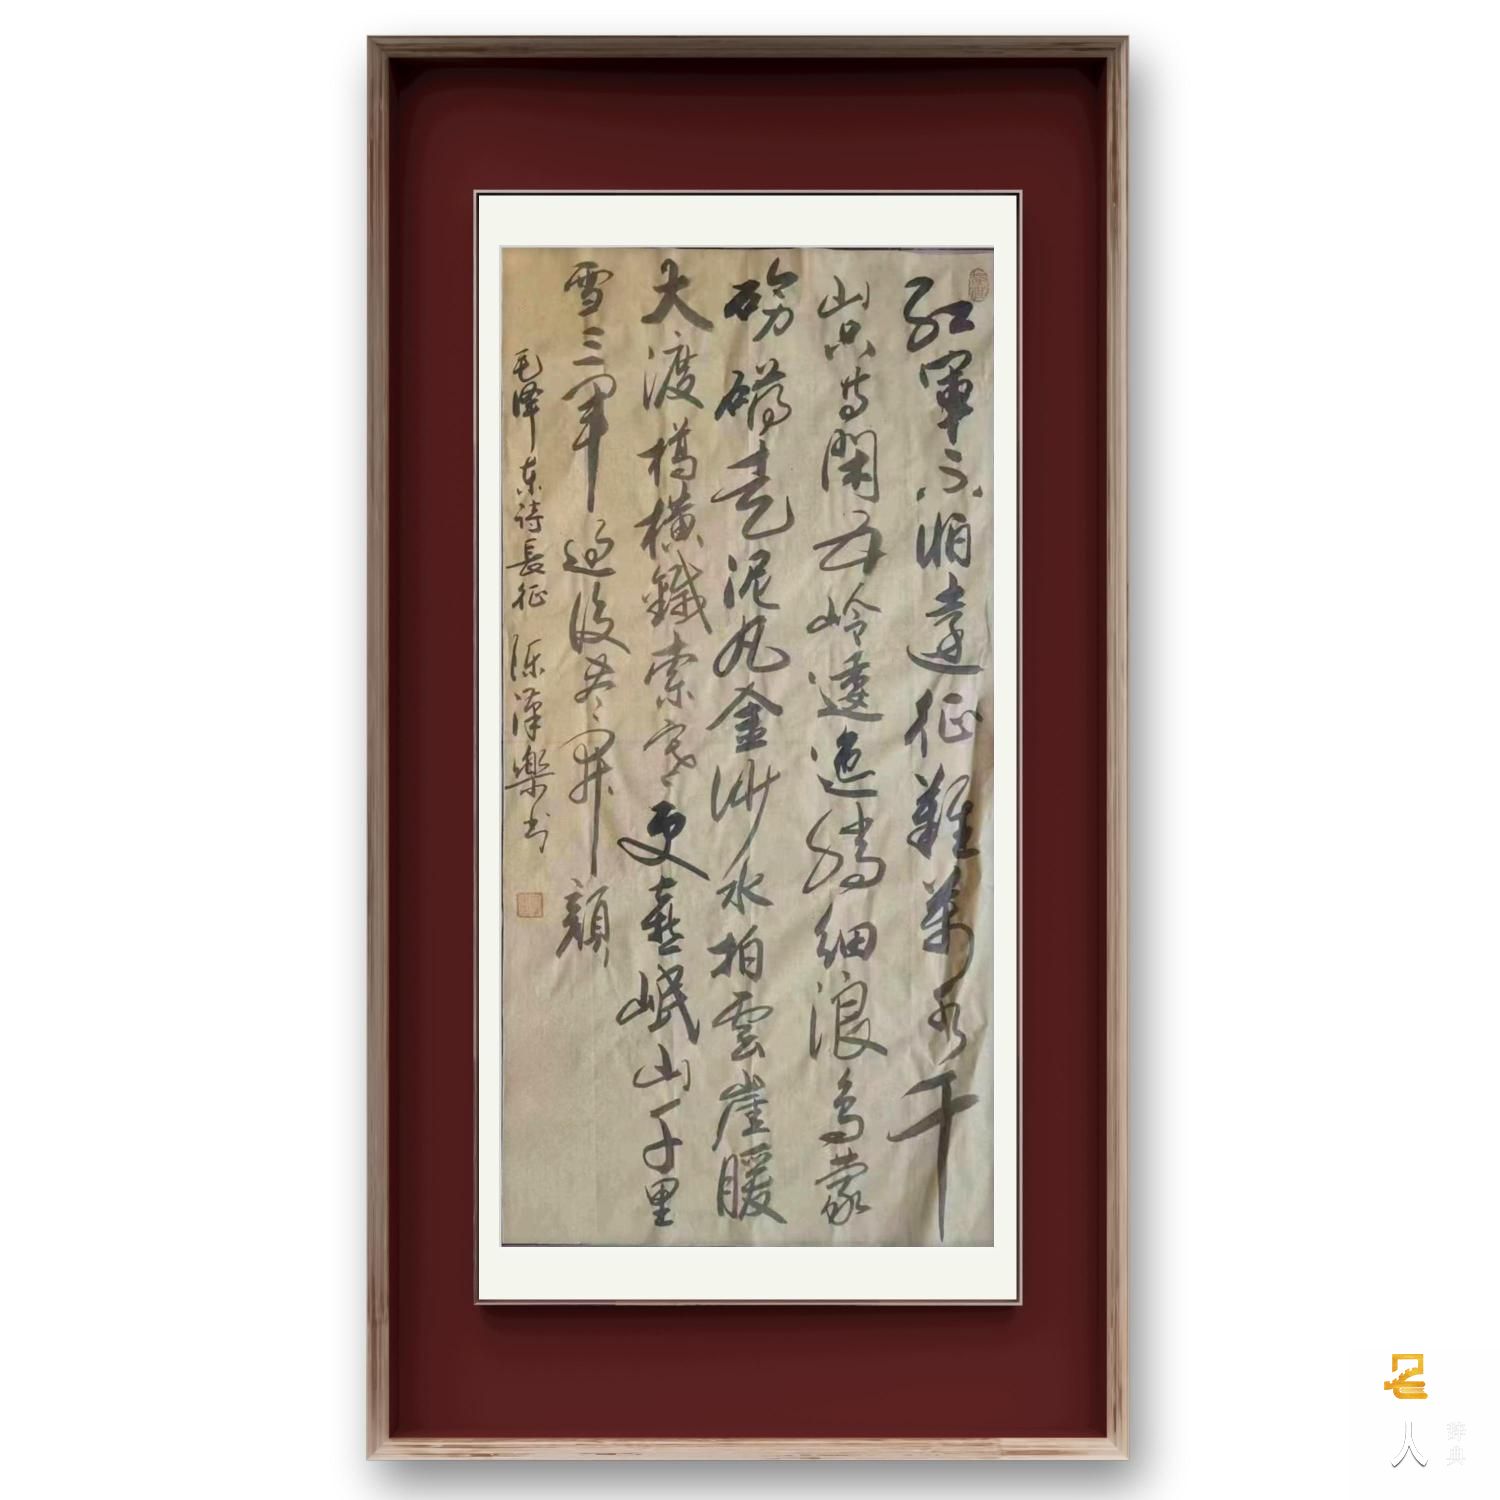 紅軍不怕遠征難萬水千
山只等閑五嶺逶迤騰細浪烏蒙
磅礴走泥丸金沙水拍雲崖暖
大渡橋橫鐵索寒更喜岷山千里
雪三軍過後盡開顏
毛泽东诗長征 陈漢樂书
名人
辞典